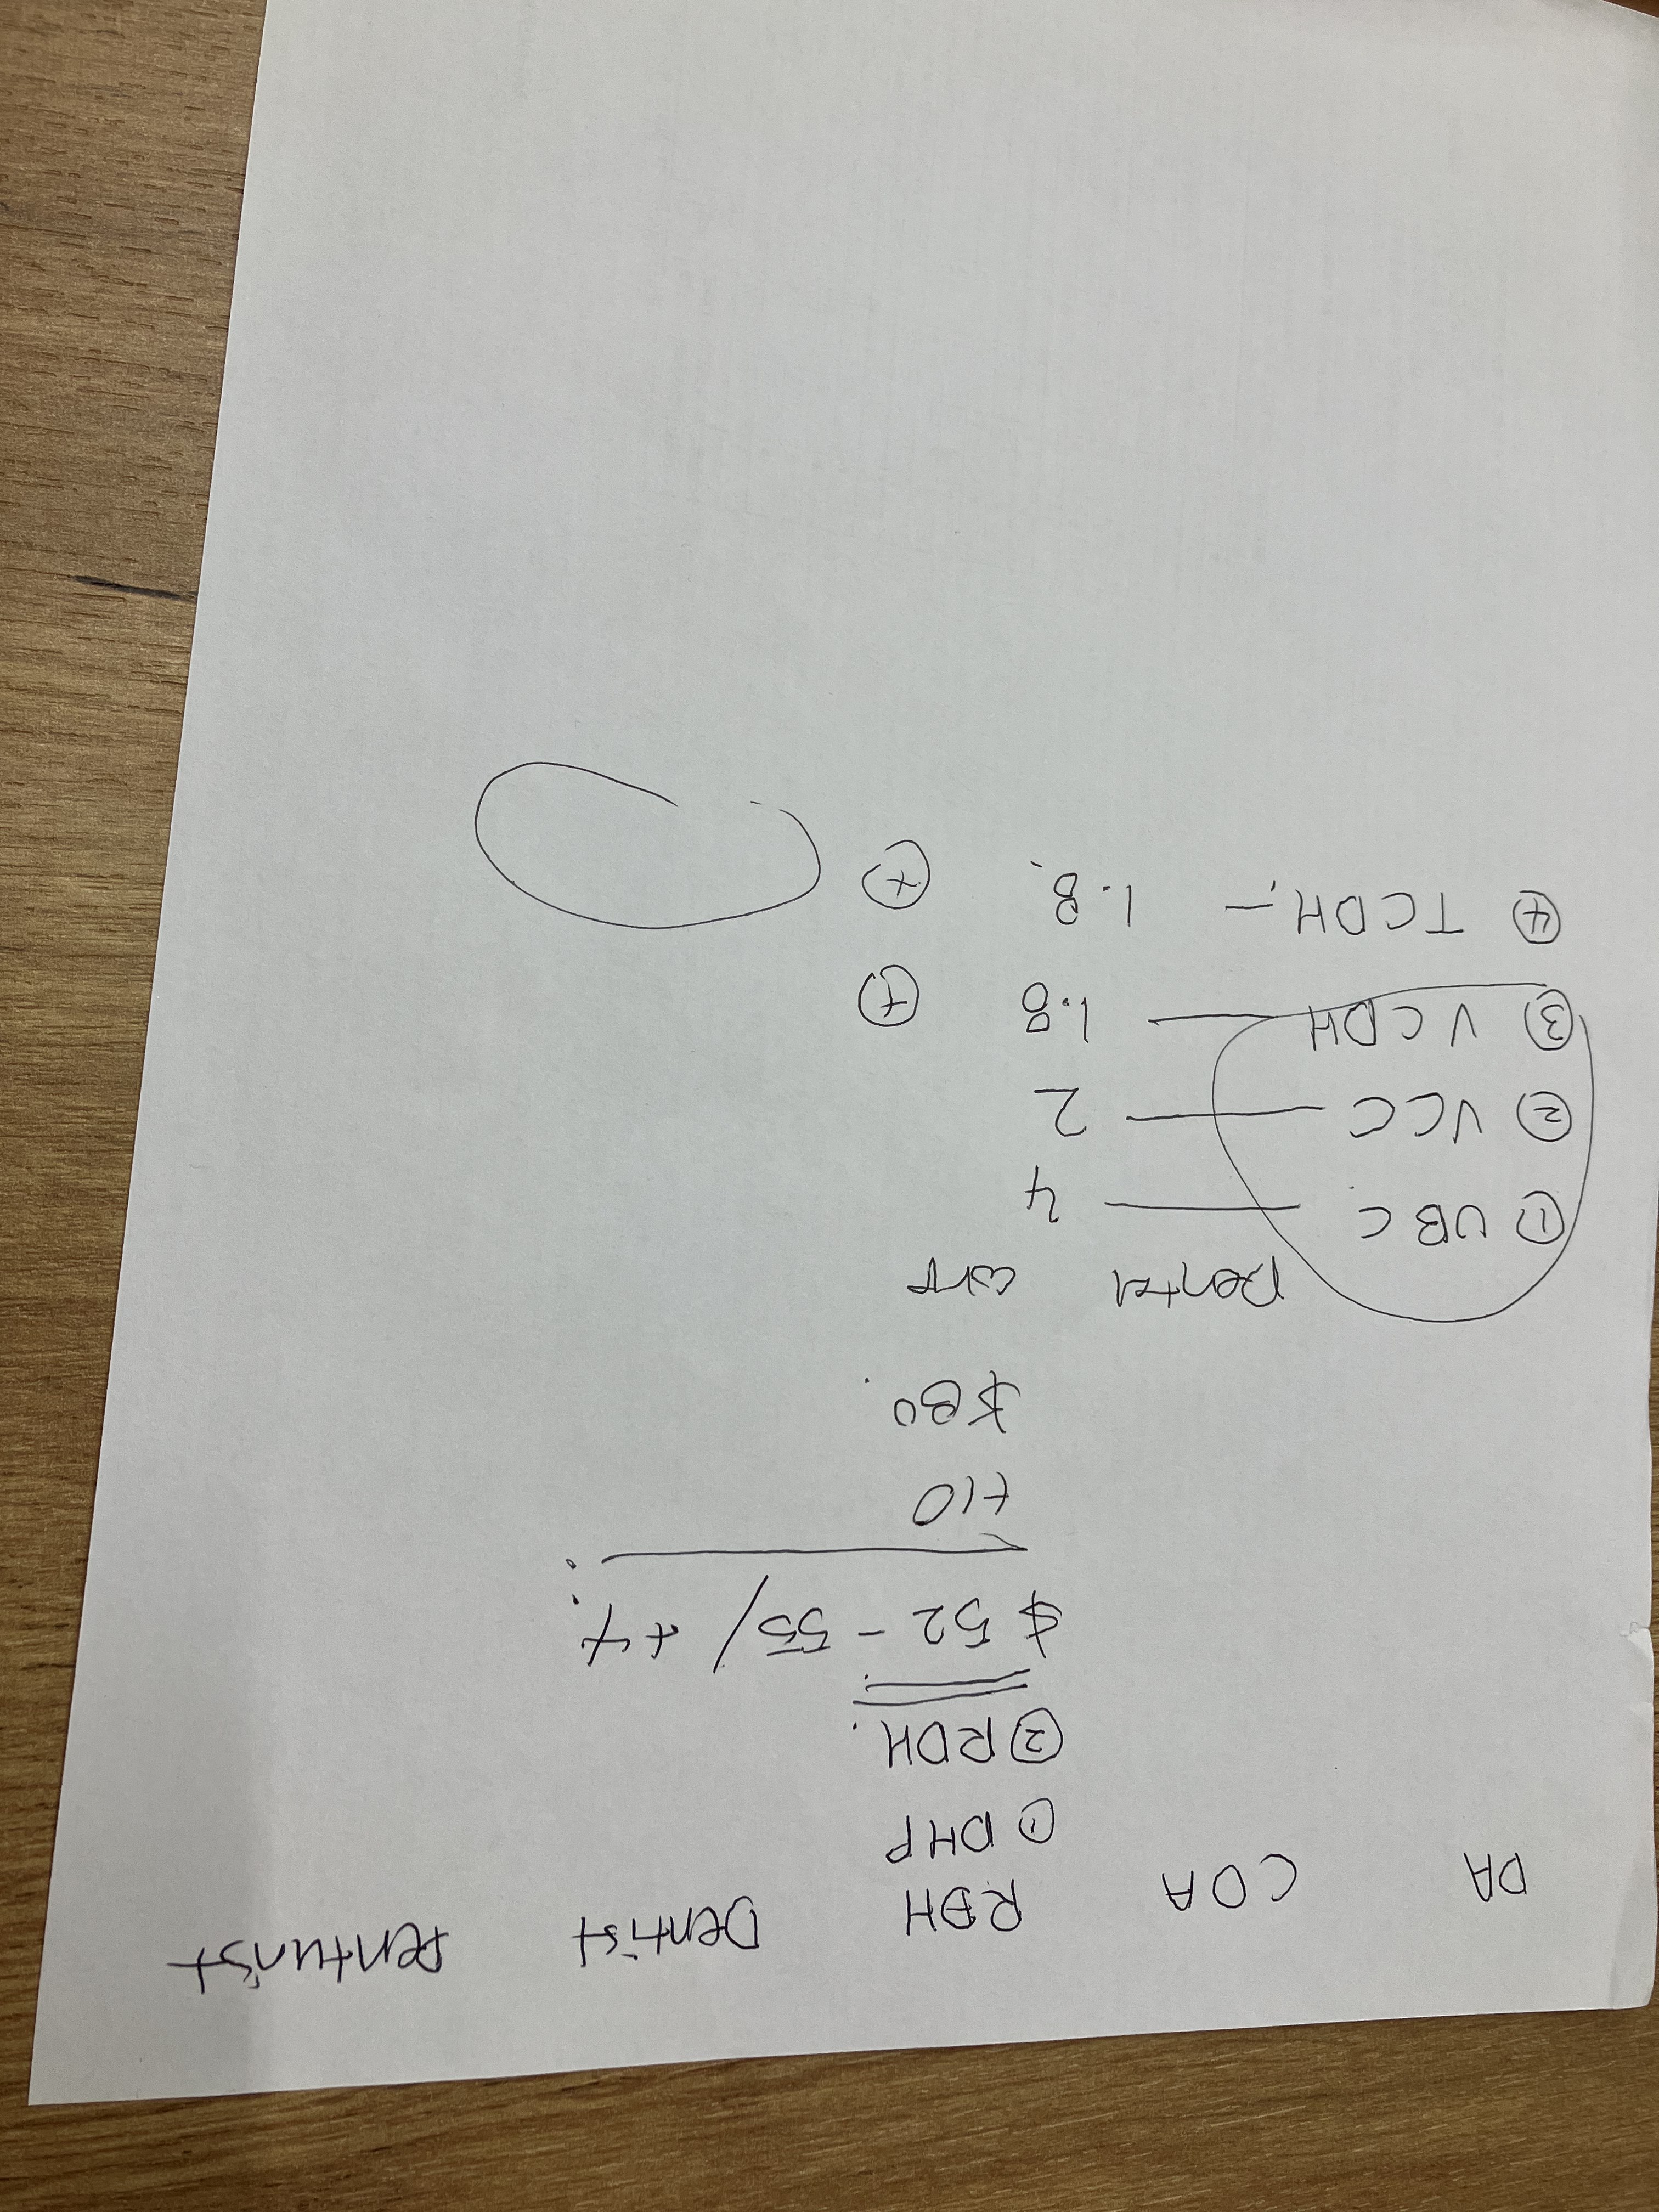 DA CDA RDH Dentist Denturist
① DHP
② RDH.
$52 - 55/ +4
+10
$80.
Dental
① UBC — 4
② VCC — 2
③ VCDH — 1.8 +
④ TCDH - 1.8. +